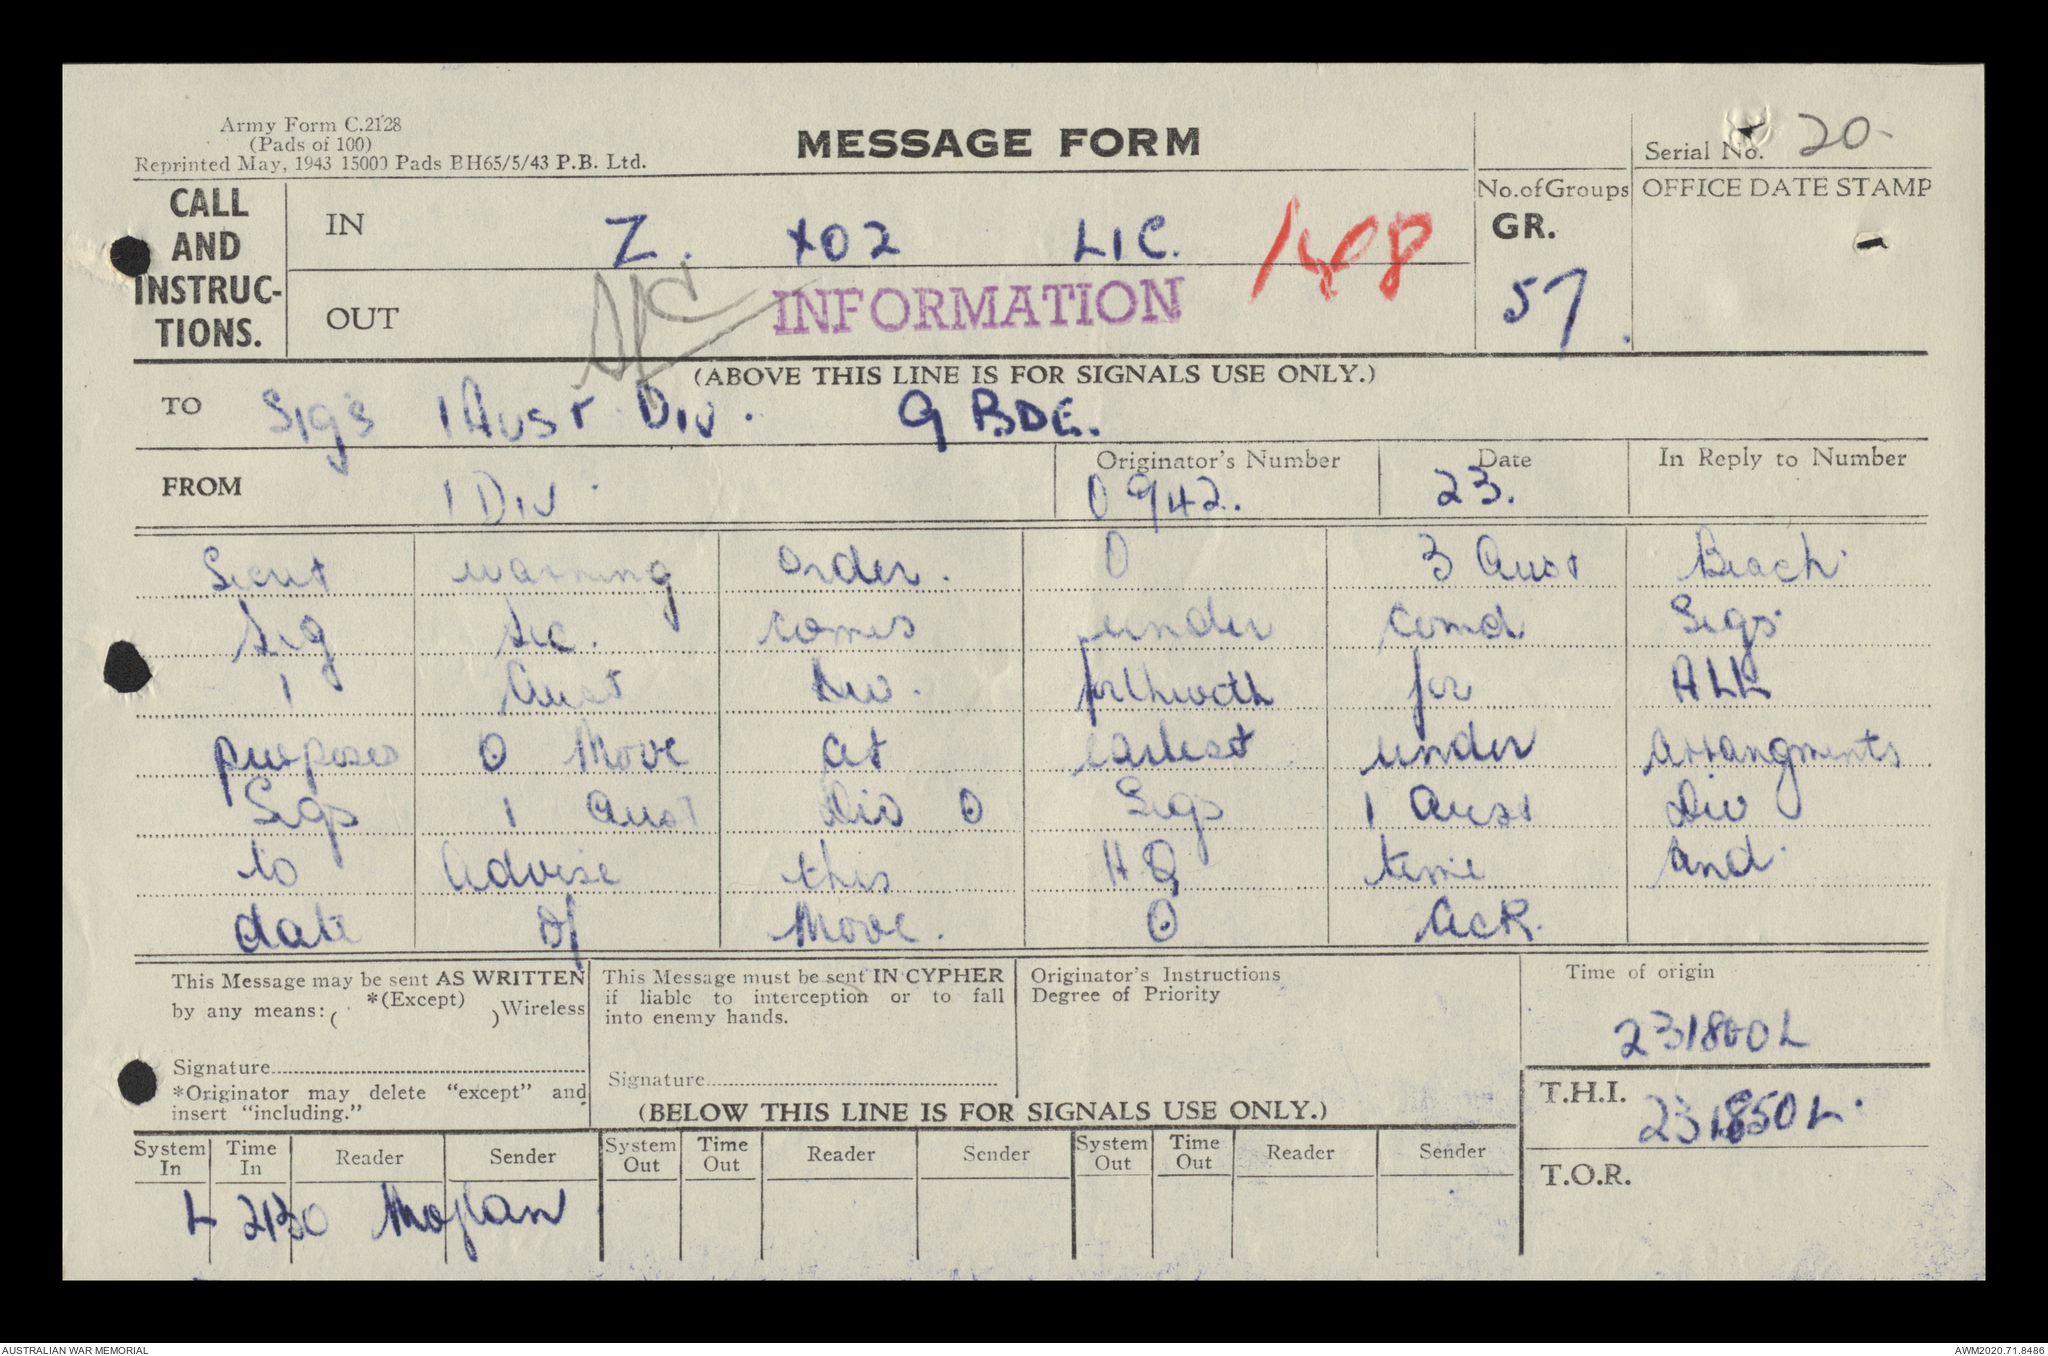 Army Form C.2128
(Pads of 100)
Reprinted May, 1943 15000 Pads BH65/5/43 P.B. Ltd.
MESSAGE FORM
Serial No. 20
CALL AND INSTRUC-TIONS.
IN Z. X02 LIC. 1408
OUT INFORMATION
No. of Groups
GR.
57.
OFFICE DATE STAMP
(ABOVE THIS LINE IS FOR SIGNALS USE ONLY.)
TO Sigs 1 Aust Div. 9 BDE.
FROM 1 Div.
Originator's Number
0942.
Date
23.
In Reply to Number
Secret warning order. O 3 Aust Beach
Sig Sec. comes under comd Sigs
1 Aust Div. forthwith for ALL
purposes O Move at earliest under arrangments
Sigs 1 Aust Div O Sigs 1 Aust Div
to advise this HQ time and
date of Move. O ACK.
This Message may be sent AS WRITTEN
by any means: ( *(Except) ) Wireless
Signature
*Originator may delete "except" and
insert "including."
This Message must be sent IN CYPHER
if liable to interception or to fall
into enemy hands.
Signature
Originator's Instructions
Degree of Priority
Time of origin
231800L
T.H.I.
231850L.
T.O.R.
(BELOW THIS LINE IS FOR SIGNALS USE ONLY.)
System In Time In Reader Sender System Out Time Out Reader Sender System Out Time Out Reader Sender
L 2130
AUSTRALIAN WAR MEMORIAL
AWM2020.71.8486